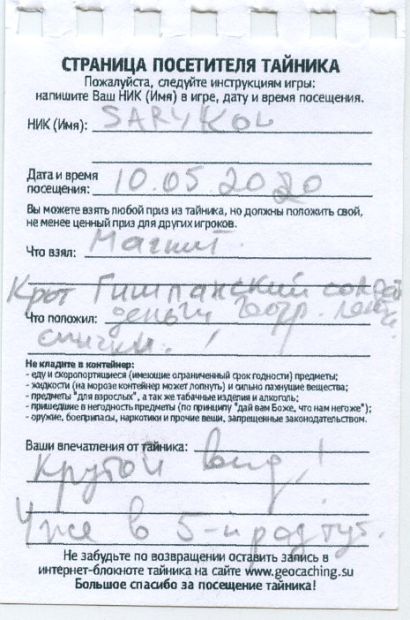 СТРАНИЦА ПОСЕТИТЕЛЯ ТАЙНИКА
Пожалуйста, следуйте инструкциям игры:
напишите Ваш НИК (Имя) в игре, дату и время посещения.
НИК (Имя): SARYKOL
Дата и время
посещения: 10.05.2020
Вы можете взять любой приз из тайника, но должны положить свой,
не менее ценный приз для других игроков.
Что взял: Магнит.
Крот Гишпанский солдат
Что положил: деньги
спички.
Не кладите в контейнер:
- еду и скоропортящиеся (имеющие ограниченный срок годности) предметы;
- жидкости (на морозе контейнер может лопнуть) и сильно пахнущие вещества;
- предметы "для взрослых", а так же табачные изделия и алкоголь;
- пришедшие в негодность предметы (по принципу "дай вам Боже, что нам негоже");
- оружие, боеприпасы, наркотики и прочие вещи, запрещенные законодательством.
Ваши впечатления от тайника:
Крутой вид!
Уже в 5-й раз тут.
Не забудьте по возвращении оставить запись в
интернет-блокноте тайника на сайте www.geocaching.su
Большое спасибо за посещение тайника!